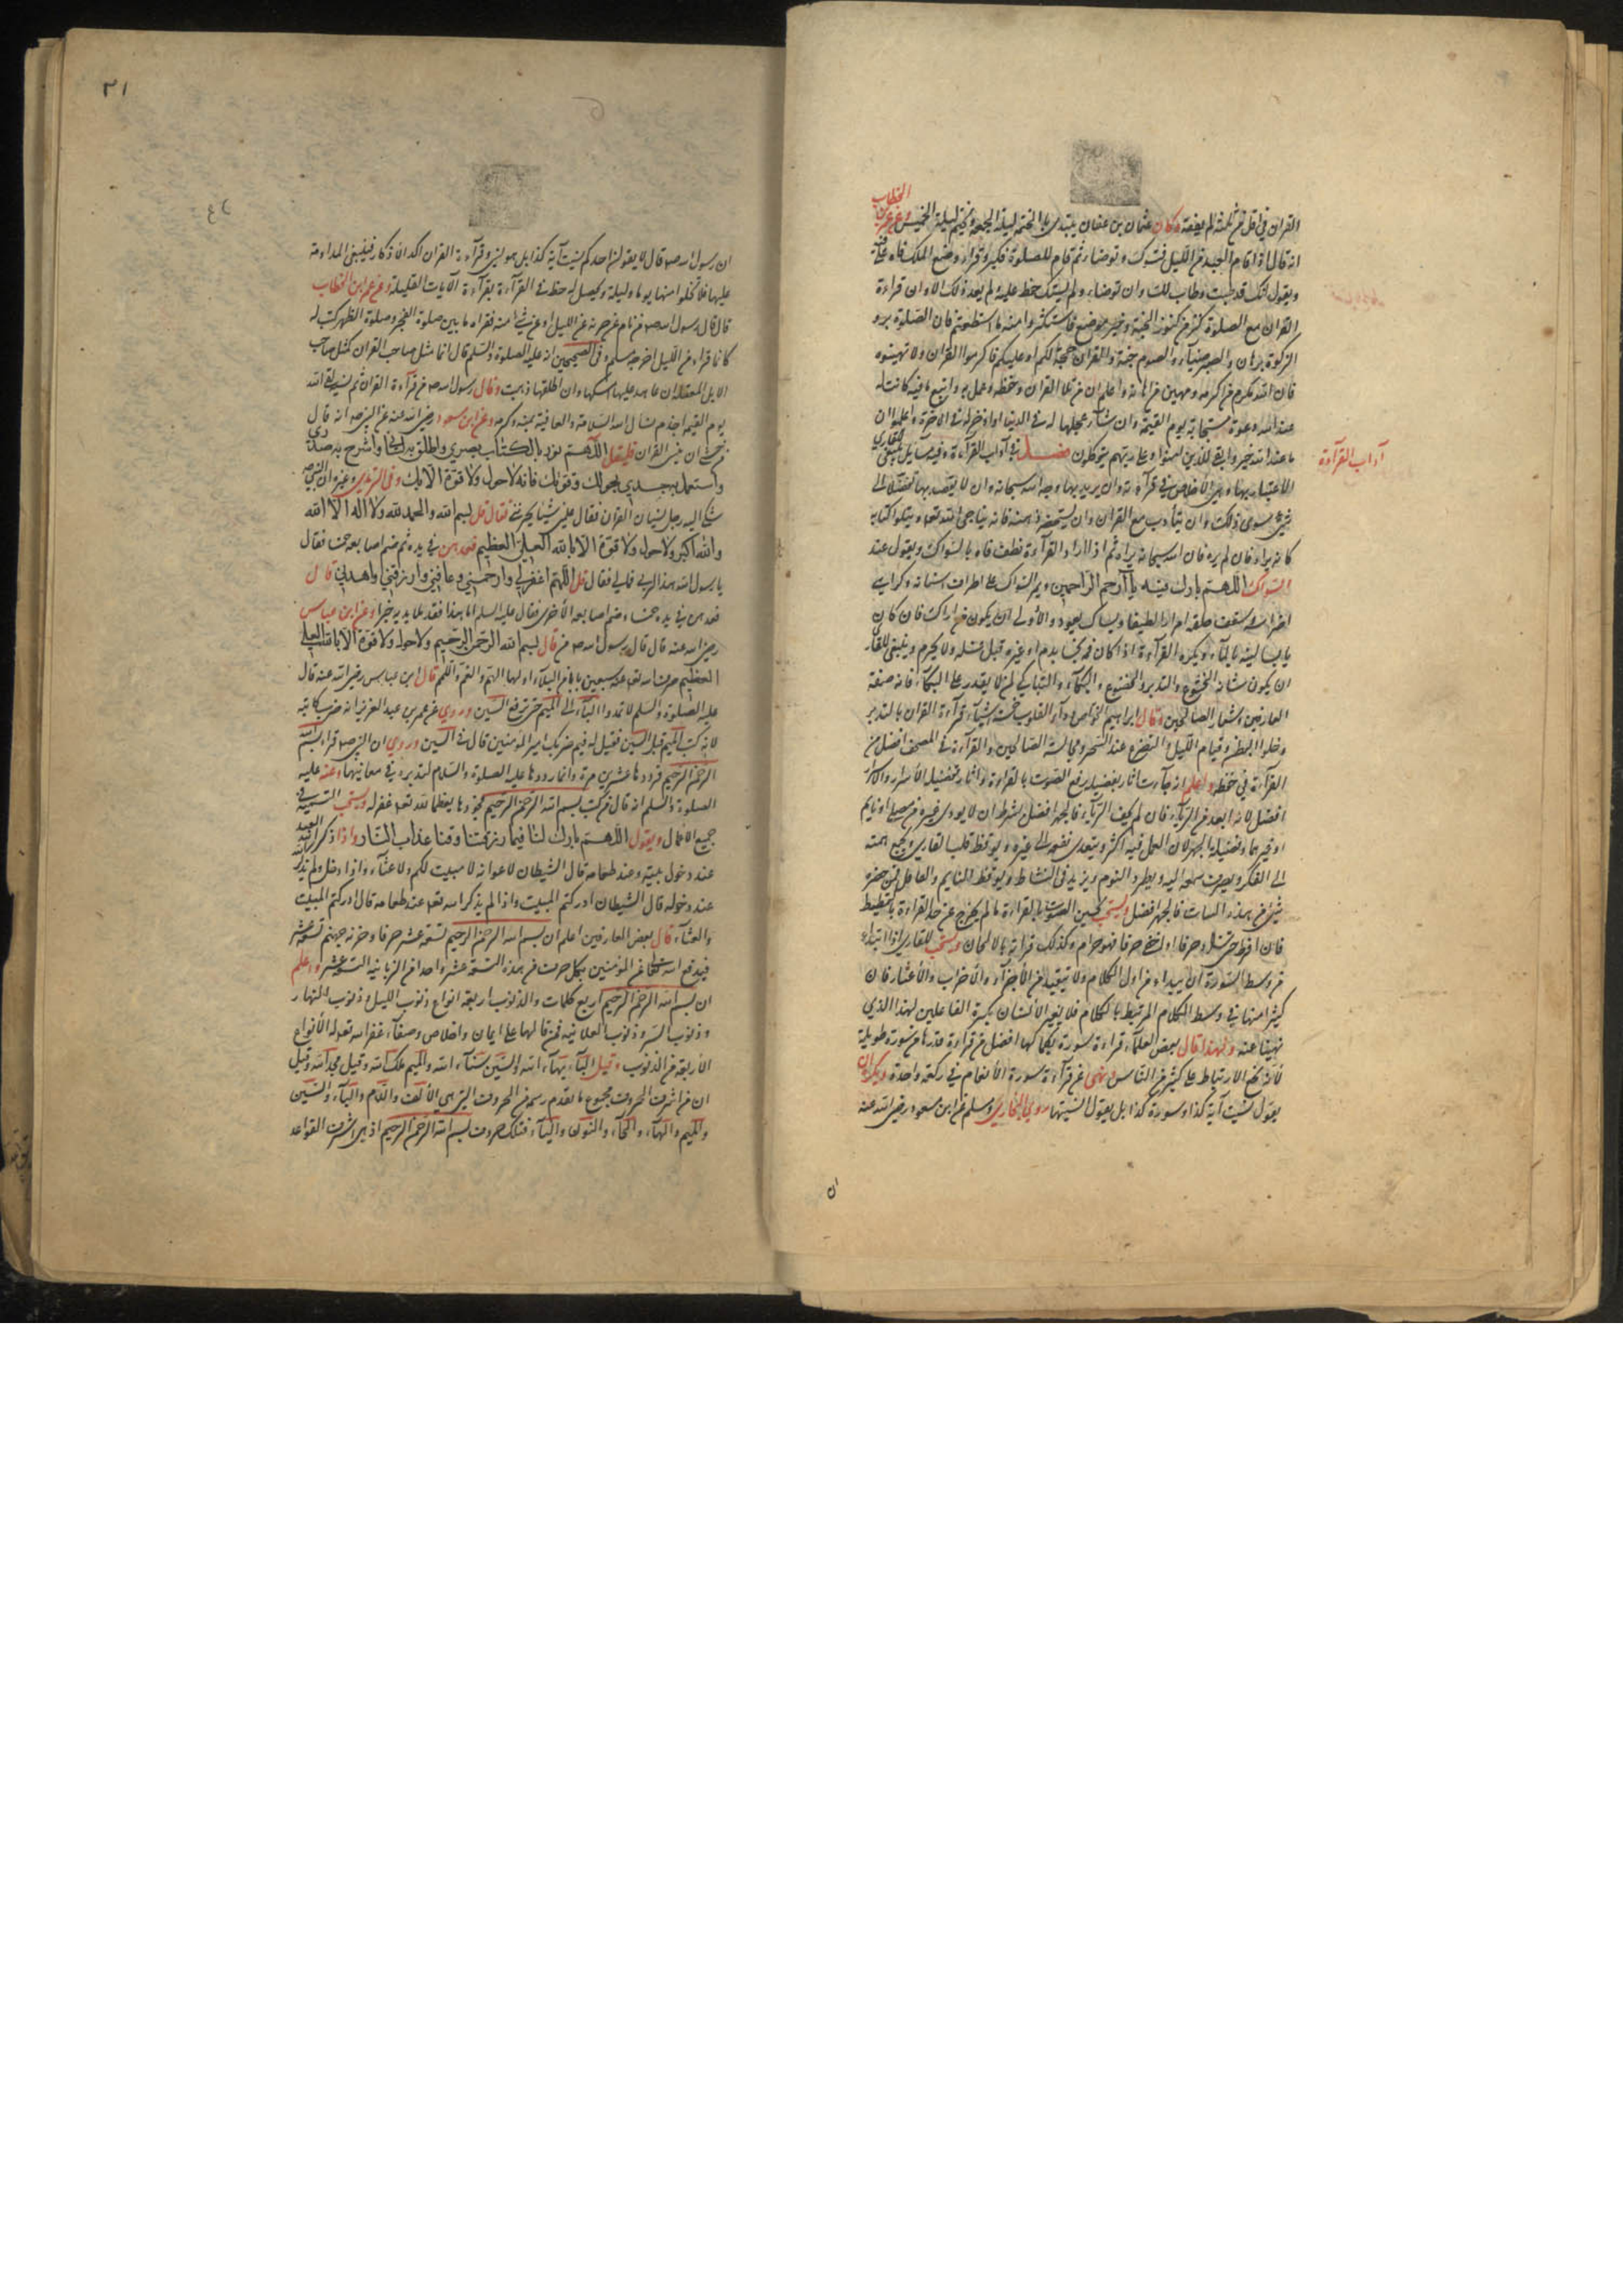 القران في اقل من ثلثة لم يفقه وكان عثمان بن عفان يبتدي بالختمة ليلة الجمعة ويختم ليلة الخميس وعن عمر بن
الخطاب
انه قال اذا قام العبد من الليل فتسوك وتوضاء ثم قام للصلوة فكبر وقراء وضع الملك فاه على فيه
ويقول اتل اتل فقد طبت وطاب لك وان توضاء ولم يستك حفظ عليه ولم يعد ذلك الا وان قراءة
القران مع الصلوة كنز من كنوز الجنة وخير موضوع فاستكثروا منه ما استطعتم فان الصلوة نور و
الزكوة برهان والصبر ضياء والصوم جنة والقران حجة لكم او عليكم فاكرموا القران ولا تهينوه
فان الله مكرم من اكرمه ومهين من اهانه واعلم ان من تلا القران وحفظه وعمل به واتبع ما فيه كانت له
عند الله دعوة مستجابة يوم القيمة وان شاء عجلها له في الدنيا او ادخرها له في الاخرة واعلموا ان
ما عند الله خير وابقى للذين امنوا وعلى ربهم يتوكلون فصل في آداب القرآءة وفيه مسايل ينبغي للقاري
آداب القرآءة
الاعتبار بها وهي الاخلاص في قرآءته وان يريد بها وجه الله سبحانه وان لا يقصد بها توصلا الى
شيء سوى ذلك وان يتأدب مع القران وان يستحضر في ذهنه فانه يناجي الله تعه ويتلوا كتابه
كانه يراه فان لم يره فان الله سبحانه يراه ثم اذا اراد القرآءة نظف فاه بالسواك ويقول عند
السواك اللهم بارك فيه يا ارحم الراحمين ويمر السواك على اطراف اسنانه وكراسي
اضراسه وسقف حلقه امرارا لطيفا ويستاك بعود والأولى ان يكون من اراك فان كان
يابسا لينه بالمآء ويكره القرآءة اذا كان فمه نجسا بدم او غيره قبل غسله ولا يحرم وينبغي للقاري
ان يكون شانه الخشوع والتدبر والخضوع والبكآء والتباكي لمن لا يقدر على البكآء فانه صفة
العارفين وشعار الصالحين وقال ابراهيم الخواص دوآء القلوب خمسة اشيآء قرآءة القران بالتدبر
وخلوا البطن وقيام الليل والتضرع عند السحر ومجالسة الصالحين والقرآءة في المصحف افضل من
القرآءة في حفظه واعلم انه جآءت اثار بفضيلة رفع الصوت بالقراءة واثار بتفضيل الأسرار والأسرار
افضل لانه ابعد من الريآء فان لم يخف الريآء فالجهر افضل بشرط ان لا يوذى غيره من مصلي او نايم
او غيرهما وفضيلة الجهر لان العمل فيه اكثر ويتعدى نفعه الى غيره ويوقظ قلب القاري ويجمع همته
الى الفكر ويصرف سمعه اليه ويطرد النوم ويزيد في النشاط ويوقظ النايم والغافل فمتى حضره
شيء من هذه النيات فالجهر افضل ويستحب تحسين الصوت بالقراءة ما لم يخرج عن حد القراءة بالتمطيط
فان افرط حتى زاد حرفا او اخفى حرفا فهو حرام وكذلك قراته بالالحان ويستحب للقاري اذا ابتدا
من وسط السورة ان يبداء من اول الكلام ولا يتقيد في الأجزآء والأحزاب والأعشار فان
كثيرا منها في وسط الكلام المرتبط بالكلام فلا يغتر الأنسان بكثرة الفاعلين لهذا الذي
نهينا عنه ولهذا قال بعض العلمآء قراءة سورة بكمالها افضل من قراءة قدرها من سورة طويلة
لأنه يخفى الارتباط على كثير من الناس ونهى عن قرآءة سورة الأنعام في ركعة واحدة ويكره ان
يقول نسيت آية كذا وسورة كذا بل يقول انسيتها روي البخاري ومسلم عن ابن مسعود رضي الله عنه
ان
٣١
٤٦
ان رسول الله ص قال لا يقولن احدكم نسيت آية كذا بل هو نسي وقرآءة القران آكد الأذكار فينبغي المداومة
عليها فلا تخلوا منها يوما وليلة ويحصل له حظ في القرآءة بقرآءة الآيات القليلة وعن عمر ابن الخطاب
قال قال رسول الله ص من نام عن حزبه من الليل او عن شي منه فقراه ما بين صلوة الفجر وصلوة الظهر كتب له
كانما قراه من الليل اخرجه مسلم وفي الصحيحين انه عليه الصلوة والسلم قال انما مثل صاحب القران كمثل صاحب
الابل المعقلة ان عاهد عليها امسكها وان اطلقها ذهبت وقال رسول الله ص من قرآءة القران ثم نسيه لقي الله
يوم القيمة اجذم نسال الله السلامة والعافية بمنه وكرمه وعن ابن مسعود رضي الله عنه عن النبي ص انه قال
من خشي ان ينسى القران فليقل اللهم نور بالكتاب بصري واطلق به لساني واشرح به صدري
واستعمل به جسدي بحولك وقوتك فانه لا حول ولا قوة الا بك وفي الترمذي وغيره ان النبي ص
شكى اليه رجل نسيان القران فقال علمني شيئا يجزئني فقال قل بسم الله والحمد لله ولا اله الا الله
والله اكبر ولا حول ولا قوة الا بالله العلي العظيم فعدهن في يده ثم ضم اصابعه خمسا فقال
يا رسول الله هذا لربي فما لي فقال قل اللهم اغفر لي وارحمني وعافني وارزقني واهدني قال
فعدهن في يده خمسا وضم اصابعه الأخرى فقال عليه السلم اما هذا فقد ملا يديه خيرا وعن ابن عباس
رضي الله عنه قال قال رسول الله ص من قال بسم الله الرحمن الرحيم ولا حول ولا قوة الا بالله العلي
العظيم صرف الله تعه عنه سبعين بابا من البلاء اولها الهم والغم واللمم قال ابن عباس رضي الله عنه قال
عليه الصلوة والسلم لا تمدوا البآء الى الميم حتى ترفع السين وروي عن عمر بن عبد العزيز انه ضرب كاتبه
لانه كتب الميم قبل السين فقيل له فيم ضربك امير المؤمنين قال في السين وروي ان النبي ص قراء بسم الله
الرحمن الرحيم فرددها عشرين مرة وانما رددها عليه الصلوة والسلام لتدبره في معانيها وعنه عليه
الصلوة والسلم انه قال من كتب بسم الله الرحمن الرحيم فجودها تعظيما لله تعه غفر له ويستحب التسمية في
جميع الأعمال ويقول اللهم بارك لنا فيما رزقتنا وقنا عذاب النار واذا ذكر العبد الله
عند دخول بيته وعند طعامه قال الشيطان لاعوانه لا مبيت لكم ولا عشآء واذا دخل ولم يذكر الله
عند دخوله قال الشيطان ادركتم المبيت واذا لم يذكر الله تعه عند طعامه قال ادركتم المبيت
والعشآء قال بعض العارفين اعلم ان بسم الله الرحمن الرحيم تسعة عشر حرفا وخزنة جهنم تسعة عشر
فيدفع الله تعالى عن المؤمنين بكل حرف من هذه التسعة عشر واحدا من الزبانية التسعة عشر واعلم
ان بسم الله الرحمن الرحيم اربع كلمات والذنوب اربعة انواع ذنوب الليل وذنوب النهار
وذنوب السر وذنوب العلانية فمن قالها على ايمان واخلاص وصفآء غفر الله تعه له الأنواع
الأربعة من الذنوب وقيل البآء بهآء الله والسين سنآء الله والميم ملك الله وقيل مجد الله وقيل
ان من اشرف الحروف مجموع ما تقدم رسمه من الحروف التي هي الألف واللام والبآء والسين
والميم والهآء والحآء والنون واليآء فتلك حروف بسم الله الرحمن الرحيم اذ هي اشرف القواعد